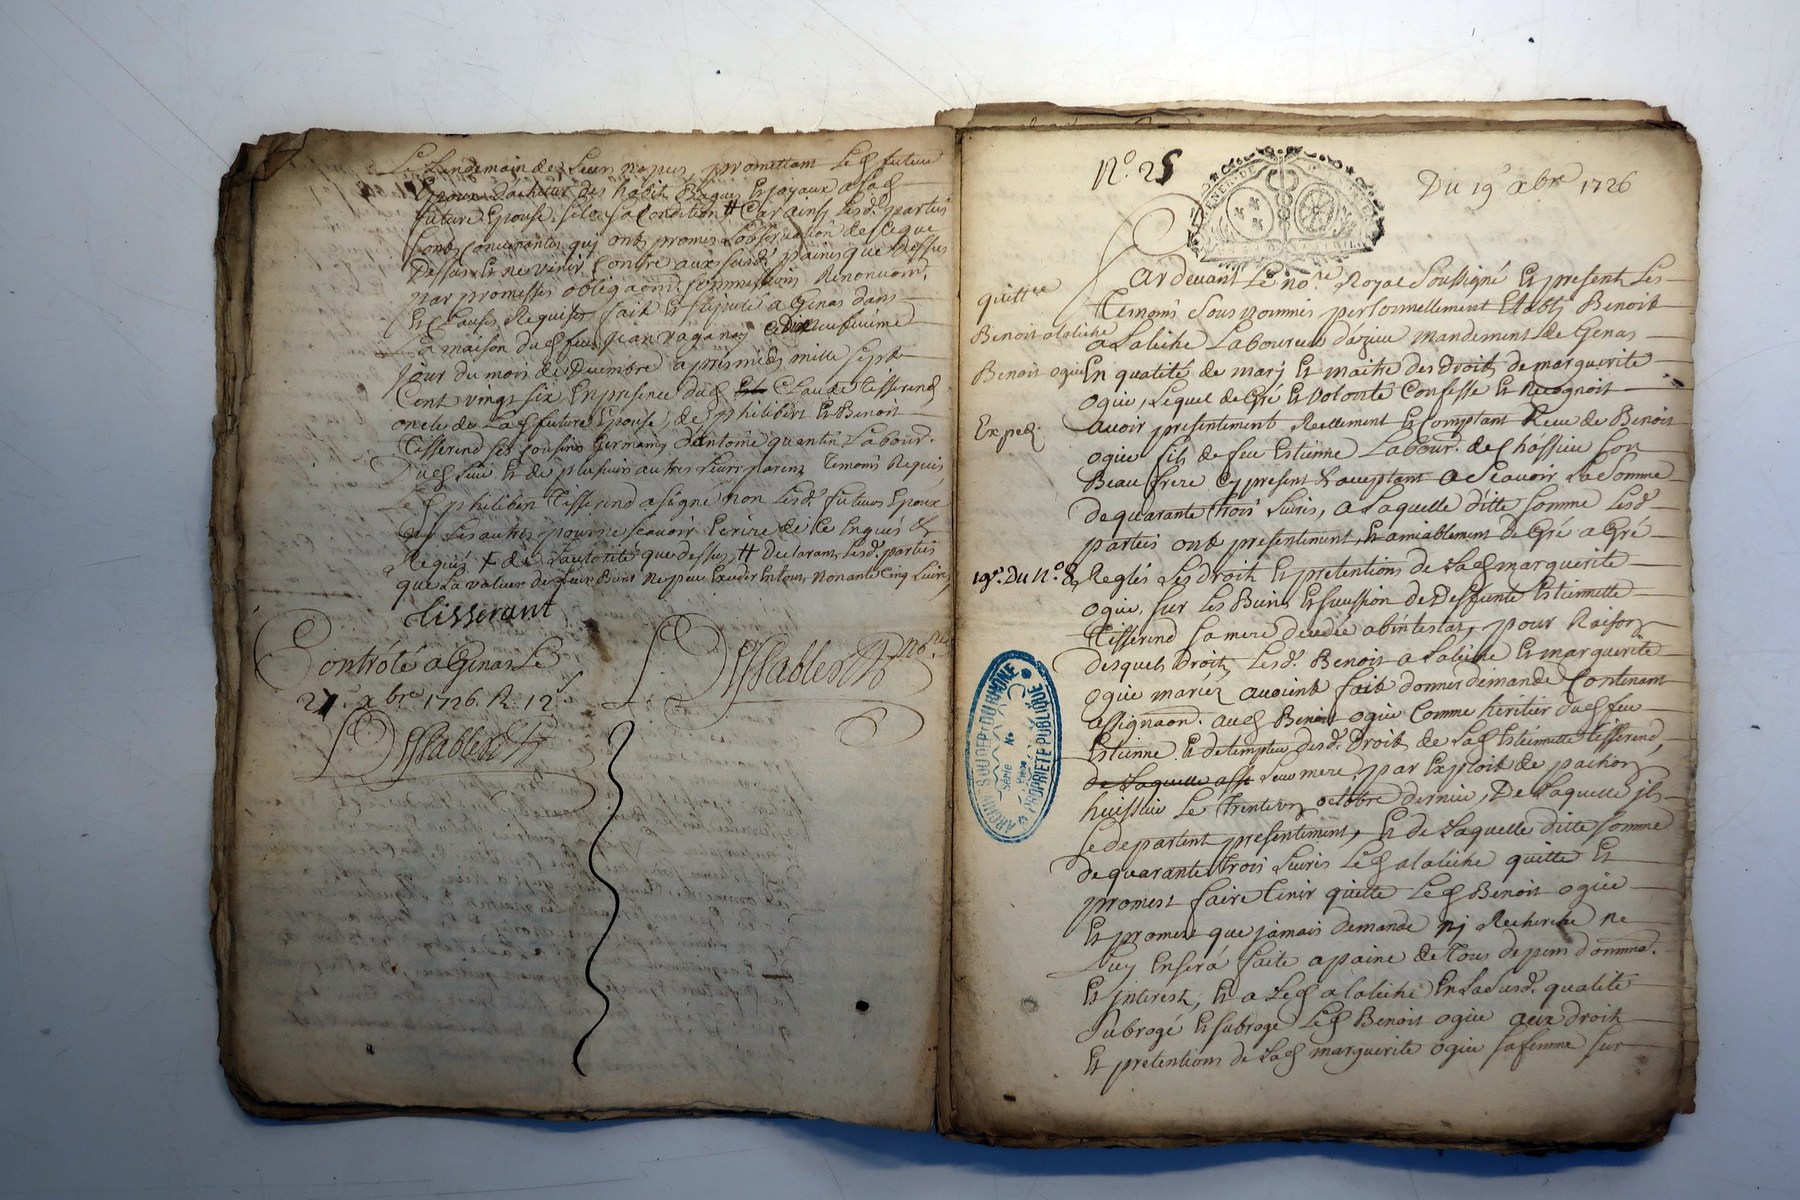 Le Lendemain de Leurs nopces, promettant Led futeur
Epoux d'achetter des habit Bagues Et joyaux a lad
future Epouse selon sa Condition # Car ainsy Lesd. parties
sont Convenantes qui ont promis L'observation de ce que
Dessus Et ne venir Contre aux susd. paines que dessus
par promesses obligaons. soummissions Renonaons.
Et Clauses Requises fait Et stipullé a Genas dans
La maison dud feu Jean Maganoj Ce Dix neufvieme
Jour du mois de Decembre apres midy mille sept
Cent vingt six En presence dud Claude Tisserend
oncle de Lad future Epouse, de philibert Et Benoit
Tisserend ses Cousins Germains d'antoine quantin Labour.
Dud lieu Et de plusieurs autres Leurs parens Temoins Requis
Led philibert Tisserend a signé non Lesd. futeurs Epoux
ny Les autres pour ne scavoir Ecrire de Ce Enquis &
Requis + de L'autorité que dessus # Declarant Lesd. parties
que La valeur de leurs Biens ne peut Exceder En tout nonante Cinq Livres
tisserant
Dessables Nore
Controlé a Genas Le
21e xbre 1726. R. 12s
Dessables
N°. 25
Du 19e xbre 1726
quittce
Benoit alaliche
Benoit ogier
Exped.
198. Du N° 8
Par devant Le nore Royal Soussigné Et present Les
Temoins Sous nommés personnellement Etably Benoit
a Laliche Laboureur d'azieu mandement de Genas
En qualité de mary Et maitre des Droits de marguerite
ogier, Lequel de Gré Et volonté Confesse Et Recognoit
avoir presentement Reellement Et Comptant Receu de Benoit
ogier fils de feu Estienne Labour. de Chassieu son
Beau frere Cy present & acceptant a Scavoir La Somme
de quarante trois Livres, a Laquelle ditte somme Lesd.
parties ont presentement, Et amiablement de Gré a Gré
Reglés Les droits Et pretentions de Lad marguerite
ogier, sur les Biens Et succession de Deffunte Estiennette
Tisserend sa mere decedée abintestat, pour Raison
desquels droits Lesd. Benoit a Laliche Et marguerite
ogier mariez avoient fait donner demande Contenant
assignaon. aud Benoit ogier Comme heritier dud feu
Estienne Et detempteur desd. Droits de Lad Estiennette tisserend,
de Laquelle asst Leur mere, par Exploit de pachon
huissier Le trente un octobre dernier, De Laquelle ils
se departent presentement, Et de Laquelle ditte somme
de quarante trois Livres Led alaliche quitte Et
promest faire tenir quitte Led Benoit ogier
Et promest que jamais demande ny Recherche ne
Luy En sera faite a paine de Tous depens dommas.
Et jnterest, Et a Led a laliche En La susd. qualité
subrogé Et subroge Led Benoit ogier aux droits
Et pretentions de Lad marguerite ogier sa femme sur
ARCHIV. SOU DEPT DU RHONE
Série N°
PROPRIETE PUBLIQUE